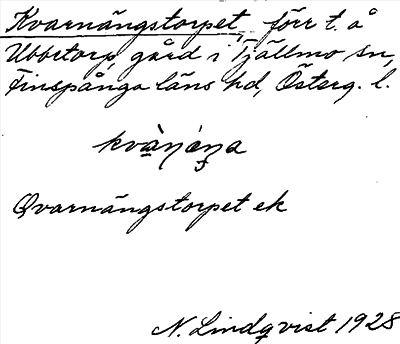 Kvarnängstorpet förr t. å
Ubbetorp, gård i Tjällmo sn,
Finspånga läns hd, Österg. l.
kvàṇéṇa
Qvarnängstorpet ek
N. Lindqvist 1928